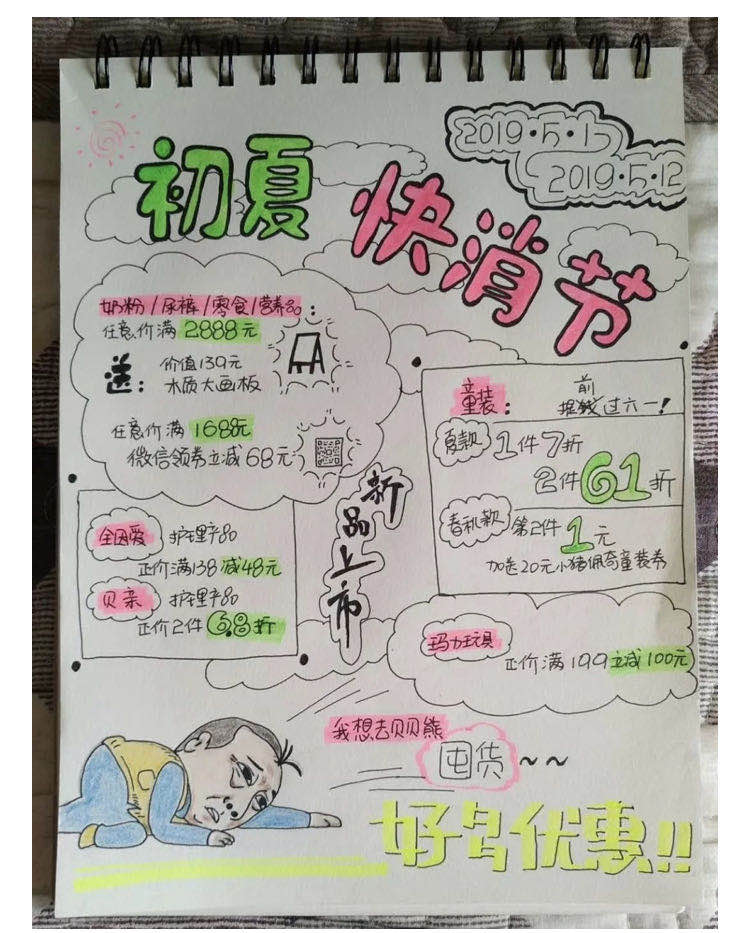 2019.5.1
2019.5.12
初夏
快消节
奶粉/尿裤/零食/营养品：
任意价满2888元
送：
价值139元
木质大画板
任意价满168元
微信领券立减68元
童装：
提前
钱过六一！
夏款
1件7折
2件61折
春秋款
第2件1元
加送20元小猪佩奇童装券
新品上市
全因爱
护理产品
正价满138减48元
贝亲
护理产品
正价2件6.8折
玛力玩具
正价满199立减100元
我想去贝贝熊
囤货~~
好多优惠!!